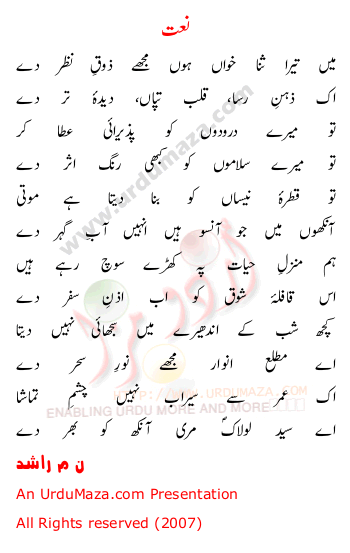 نعت
میں تیرا ثنا خواں ہوں مجھے ذوقِ نظر دے
اک ذہنِ رسا، قلب تپاں، دیدۂ تر دے
تو میرے درودوں کو پذیرائی عطا کر
تو میرے سلاموں کو کبھی رنگ اثر دے
تو قطرۂ نیساں کو بنا دیتا ہے موتی
آنکھوں میں جو آنسو ہیں انہیں آبِ گہر دے
ہم منزلِ حیات پہ کھڑے سوچ رہے ہیں
اس قافلۂ شوق کو اب اذنِ سفر دے
کچھ شب کے اندھیرے میں سجھائی نہیں دیتا
اے مطلع انوار مجھے نورِ سحر دے
اک عمر سے سیراب نہیں چشمِ تماشا
اے سید لولاکؐ مری آنکھ کو بھر دے
ن م راشد
An UrduMaza.com Presentation
All Rights reserved (2007)
www.urdumaza.com
اردو مزا
HTTP://WWW.URDUMAZA.COM
ENABLING URDU MORE AND MORE